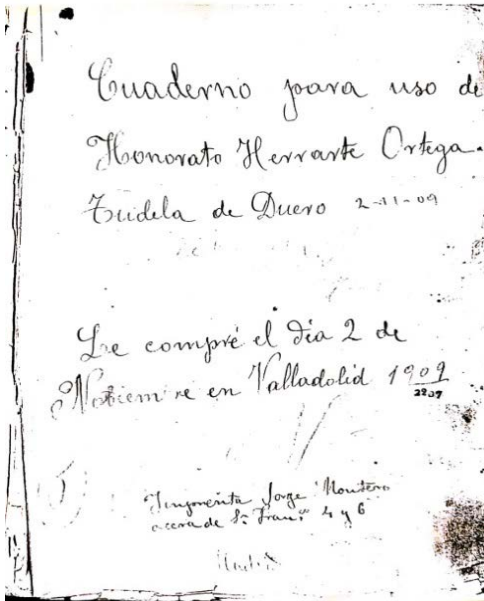 Cuaderno para uso de
Honorato Herrarte Ortega.
Tudela de Duero 2-11-09
Le compré el dia 2 de
en Valladolid 1909
2207
Jorge Montero
acera de Sn Franco 4 y 6